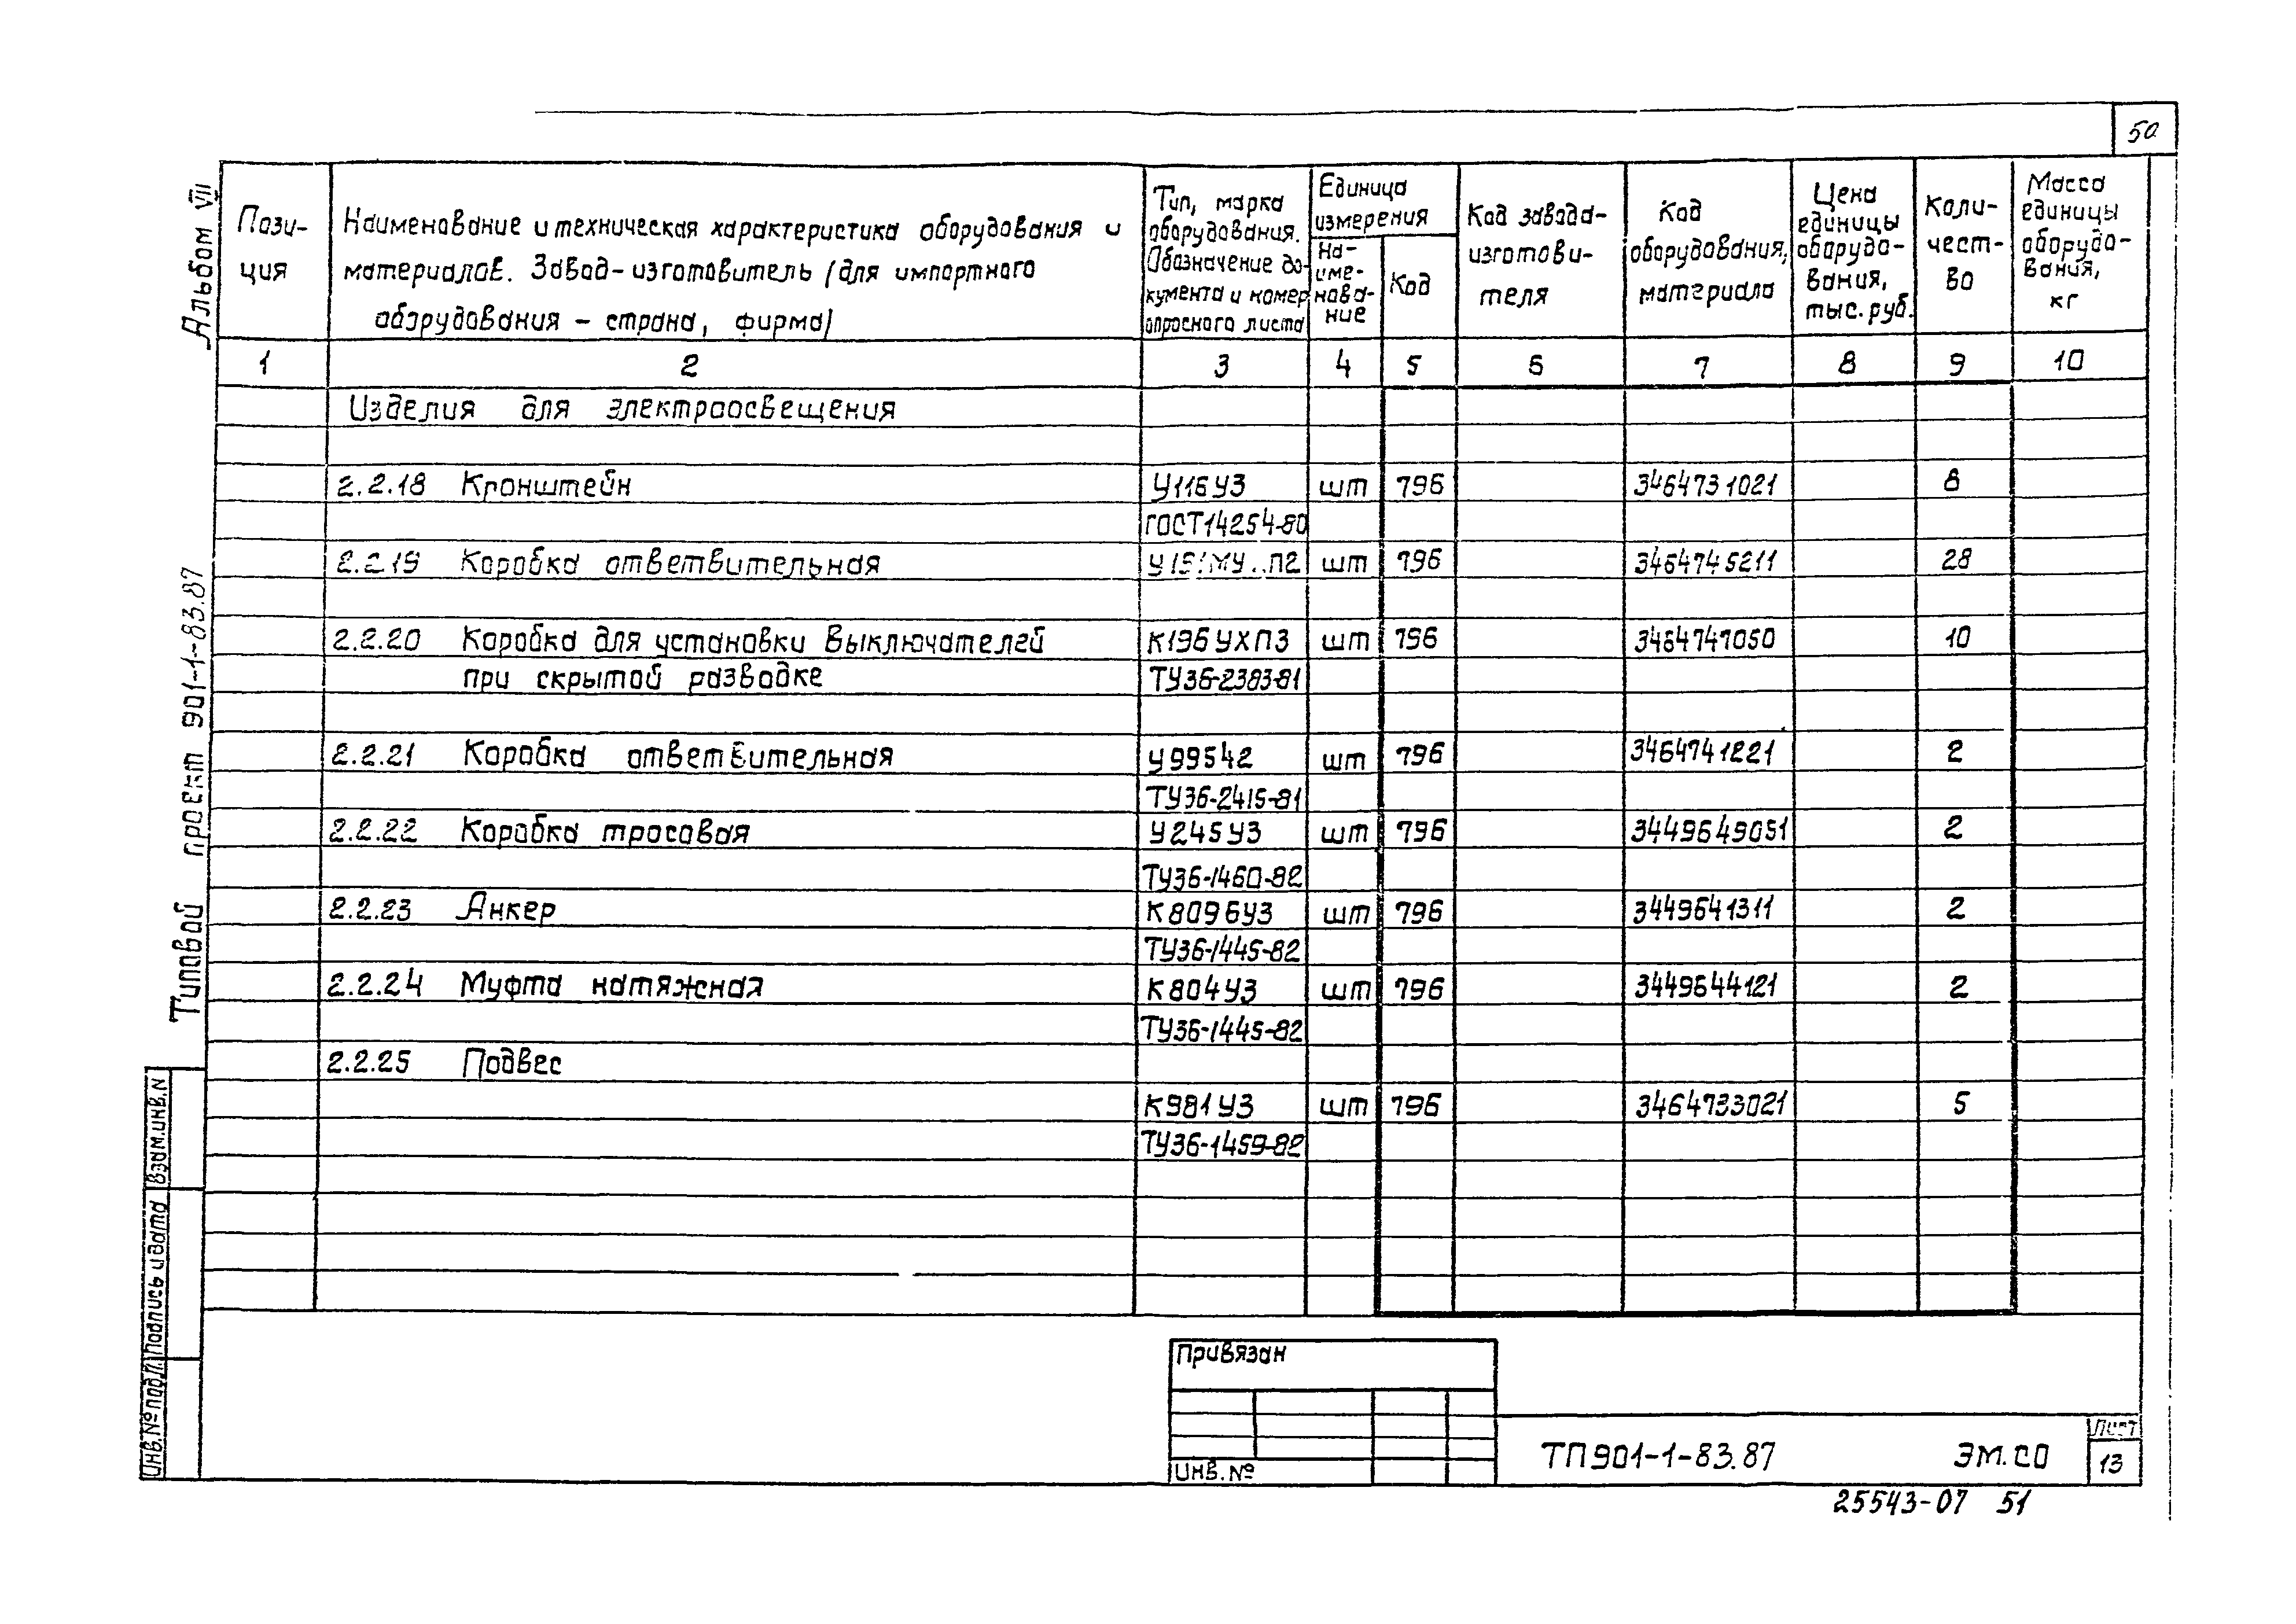 50
Альбом VII
Типовой проект 901-1-83.87
Пози-
ция
Наименование и техническая характеристика оборудования и
материалов. Завод-изготовитель (для импортного
оборудования - страна, фирма)
Тип, марка
оборудования.
Обозначение до-
кумента и номер
опросного листа
Единица
измерения
На-
име-
нова-
ние
Код
Код завода-
изготови-
теля
Код
оборудования,
материала
Цена
единицы
оборудо-
вания,
тыс. руб.
Коли-
чест-
во
Масса
единицы
оборудо-
вания,
кг
1 2 3 4 5 6 7 8 9 10
Изделия для электроосвещения
2.2.18 Кронштейн У116У3 шт 796 3464731021 8
ГОСТ14254-80
2.2.19 Коробка ответвительная шт 796 3464745211 28
2.2.20 Коробка для установки выключателей К196УХЛ3 шт 796 3464747050 10
при скрытой разводке ТУ36-2383-81
2.2.21 Коробка ответвительная У99542 шт 796 3464741221 2
ТУ36-2415-81
2.2.22 Коробка тросовая У245У3 шт 796 3449649051 2
ТУ36-1460-82
2.2.23 Анкер К8096У3 шт 796 3449641311 2
ТУ36-1445-82
2.2.24 Муфта натяжная К804У3 шт 796 3449644121 2
ТУ36-1445-82
2.2.25 Подвес
К981У3 шт 796 3464733021 5
ТУ36-1459-82
Взам.инв.N
Подпись и дата
Инв.№ подл.
Привязан
Инв. №
ТП901-1-83.87 ЭМ.СО
Лист
13
25543-07 51